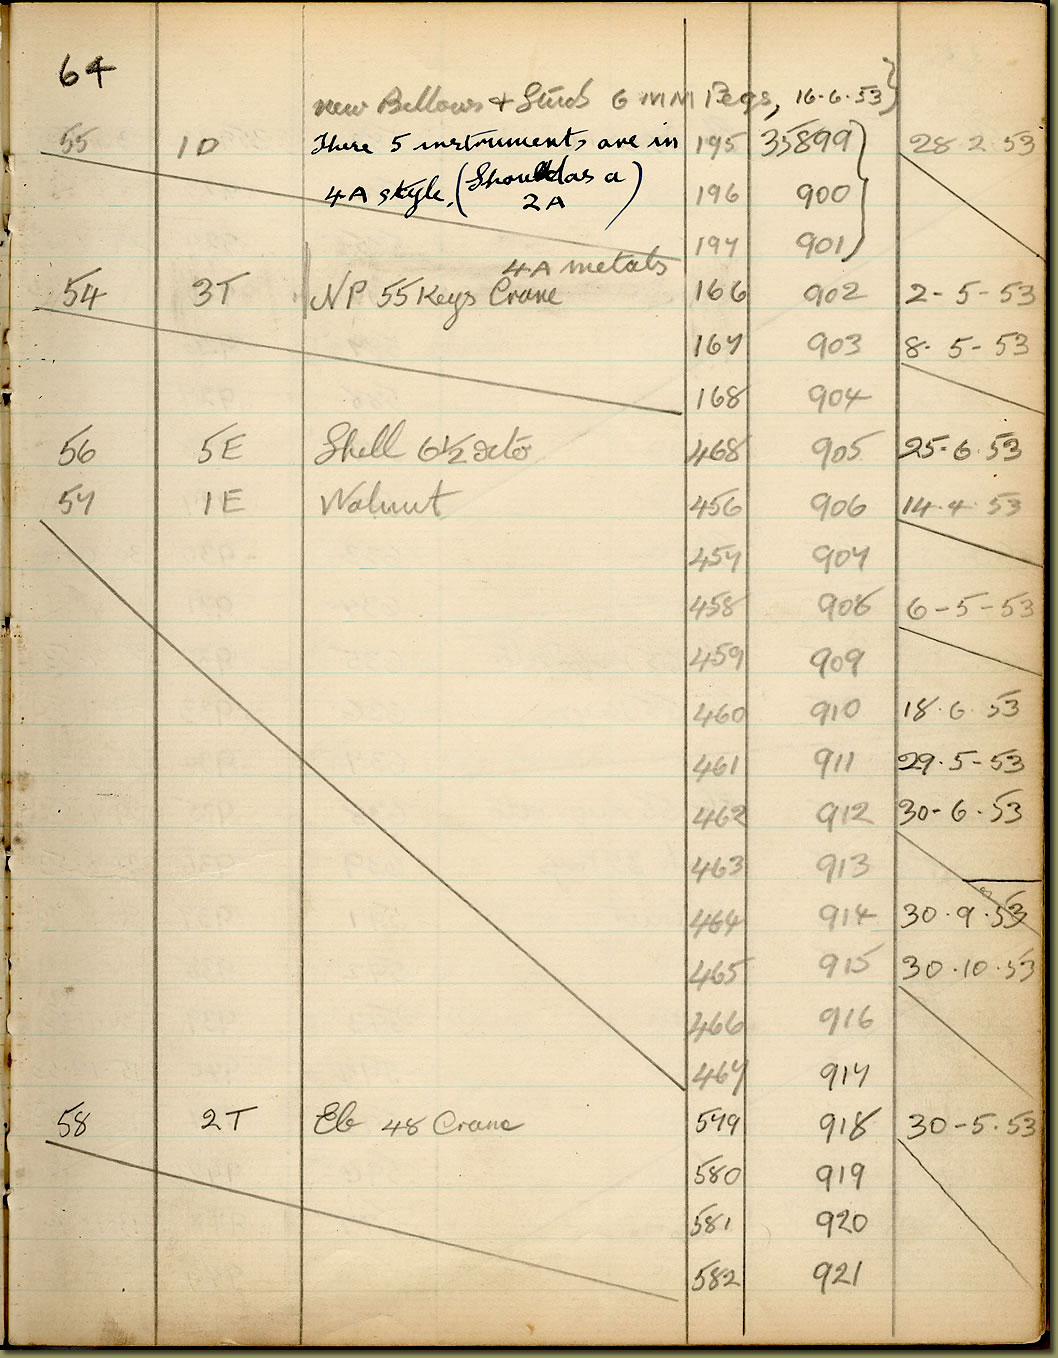 64
new Bellows & Studs 6 MM Pegs, 16.6.53 }
55 1D These 5 instruments are in 195 35899 28 2 53
4A style. (Should as a 196 900
2A)
197 901 }
4A metals
54 3T NP 55 Keys Crane 166 902 2-5-53
167 903 8.5-53
168 904
56 5E Shell 6½ 468 905 25-6.53
57 1E Walnut 456 906 14.4.53
457 907
458 908 6-5-53
459 909
460 910 18.6.53
461 911 29.5-53
462 912 30-6.53
463 913
464 914 30.9.53
465 915 30.10.53
466 916
467 917
58 2T Eb 48 Crane 579 918 30-5.53
580 919
581 920
582 921